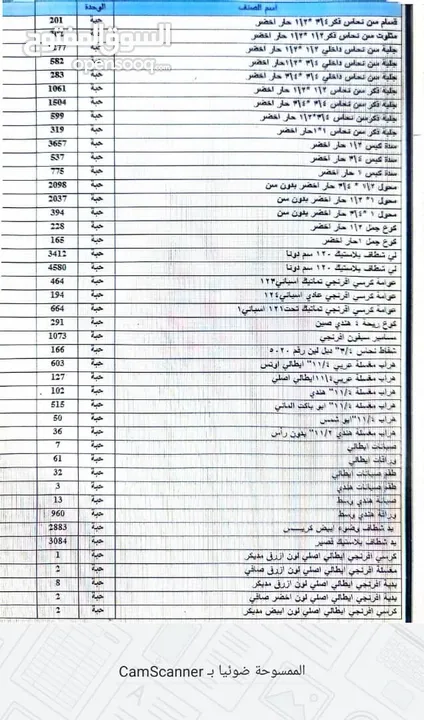 اسم الصنف الوحدة
قسام سن نحاس ذكر ٣\٤* ١\٢ حار اخضر حبة 201
مثلوث سن نحاس ذكر ١\٢ *١\٢ حار اخضر حبة
جلبة سن نحاس داخلي ١\٢ *١\٢ حار اخضر حبة 377
جلبة سن نحاس داخلي ٣\٤ *١\٢حار اخضر حبة 582
جلبة سن نحاس داخلي ٣\٤ *٣\٤ حار اخضر حبة 283
جلبة ذكر سن نحاس ١\٢ *١\٢ حار اخضر حبة 1061
جلبة ذكر سن نحاس ٣\٤ *٣\٤ حار اخضر حبة 1504
جلبة ذكر سن نحاس ٣\٤*١\٢ حار اخضر حبة 599
جلبة ذكر سن نحاس ١*١حار اخضر حبة 319
سدة كبس ١\٢ حار اخضر حبة 3657
سدة كبس ٣\٤ حار اخضر حبة 537
سدة كبس ١ حار اخضر حبة 775
محول ١\٢ * ٣\٤ حار اخضر بدون سن حبة 2098
محول ١* ١\٢ حار اخضر بدون سن حبة 2037
محول ١ *٣\٤ حار اخضر بدون سن حبة 394
كوع جمل ١\٢ حار اخضر حبة 228
كوع جمل ١حار اخضر حبة 165
لي شطاف بلاستيك ١٢٠ سم دونا حبة 3412
لي شطاف بلاستيك ١٢٠ سم دونا حبة 4580
عوامة كرسي افرنجي تماتيك اسباني١٢٣ حبة 464
عوامة كرسي افرنجي عادي اسباني١٢٤ حبة 194
عوامة كرسي افرنجي تماتيك تحت١٢١ اسباني١ حبة 664
كوع ريحة ٤ هندي صين حبة 291
مسامير سيفون افرنجي حبة 1073
شفاط نحاس ٣/٤" دبل لين رقم ٥٠٢٠ حبة 166
هراب مغسلة عربي ١١/٤" ايطالي اونس حبة 603
هراب مغسلة عربي١١/٤ايطالي اصلي حبة 127
هراب مغسلة ١١/٤" هندي حبة 102
هراب مغسلة ١١/٤" ابو باكت الماني حبة 515
هراب ١١/٤"ابو شمس حبة 50
هراب مغسلة هندي ١١/٢" بدون رأس حبة 36
صبانات ايطالي حبة 7
وراقات ايطالي حبة 61
طقم صبانات ايطالي حبة 32
طقم صبانات هندي حبة 3
صبانة هندي وسط حبة 13
وراقة هندي وسط حبة 960
يد شطاف وضوء ابيض كريسس حبة 2883
يد شطاف بلاستيك قصير حبة 3084
كرسي افرنجي ايطالي اصلي لون ازرق مديكر حبة 1
مغسلة افرنجي ايطالي اصلي لون ازرق صافي حبة 2
بدية افرنجي ايطالي اصلي لون ازرق مديكر حبة 8
بدية افرنجي ايطالي اصلي لون اخضر صافي حبة 2
كرسي افرنجي ايطالي اصلي لون ابيض مديكر حبة 2
السوق المفتوح
opensooq.com
الممسوحة ضوئيا بـ CamScanner